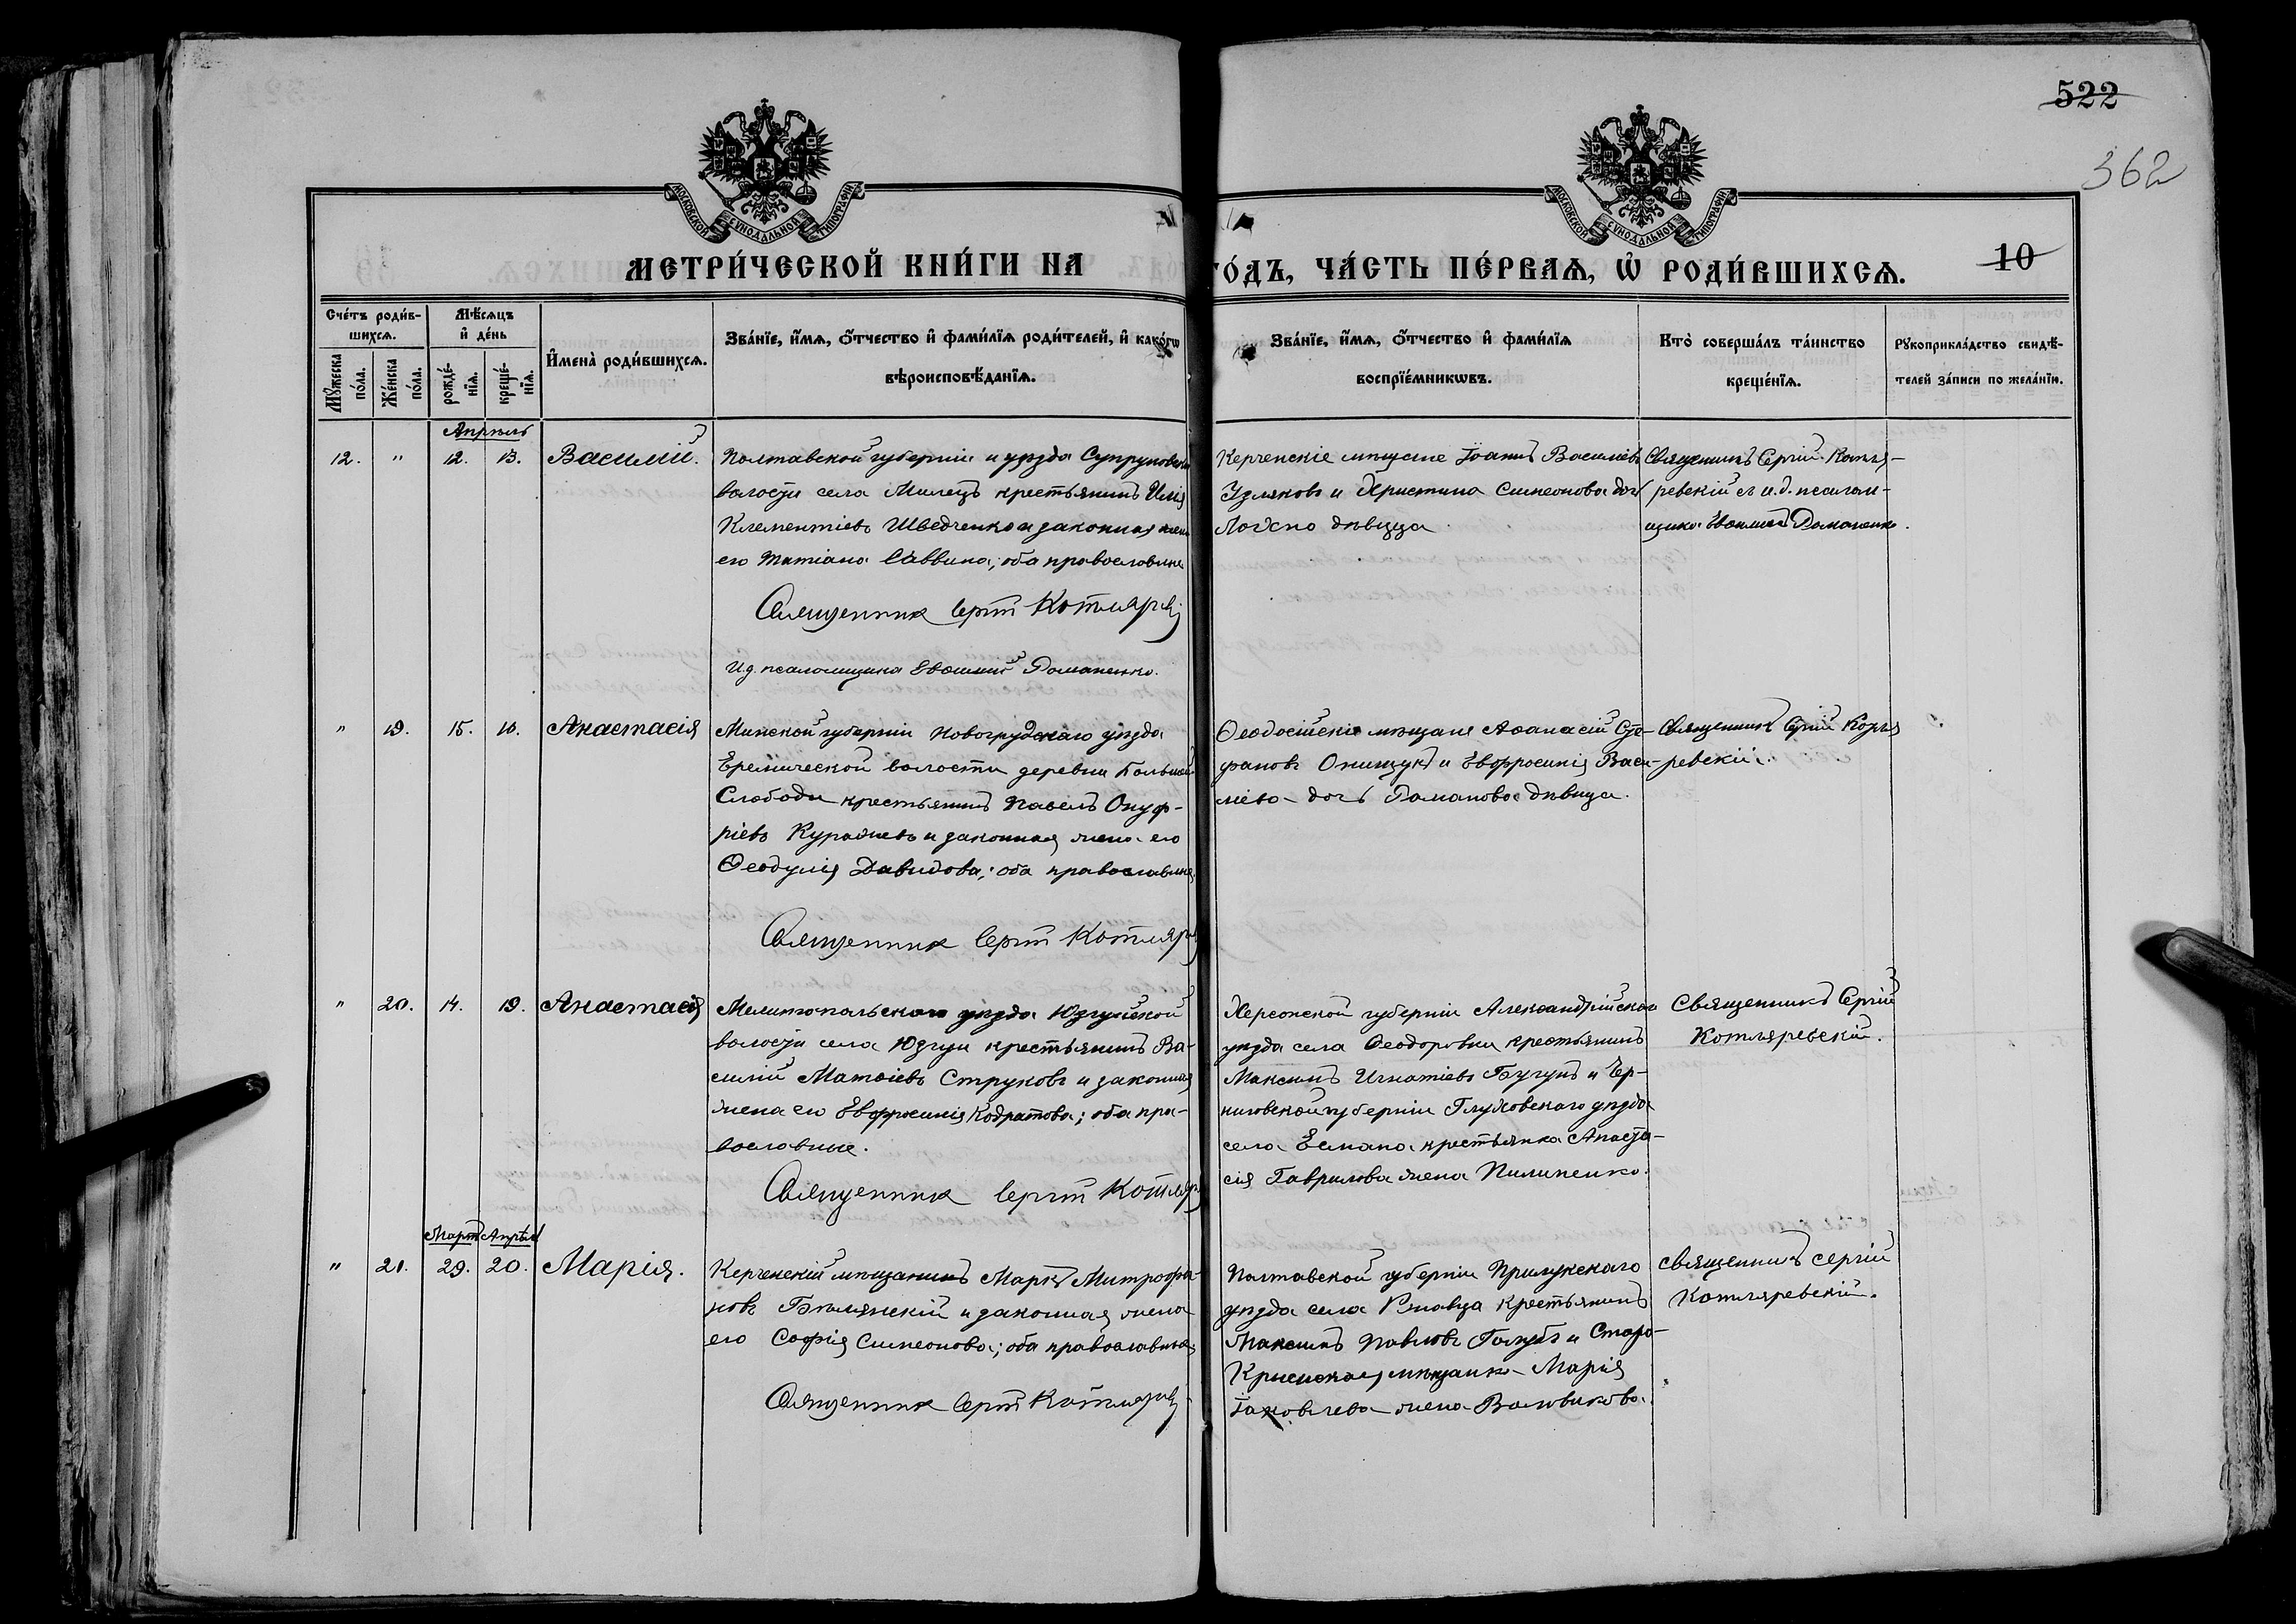 522
362
МОСКОВСКОЙ СѴНОДАЛЬНОЙ ТИПОГРАФІИ
МОСКОВСКОЙ СѴНОДАЛЬНОЙ ТИПОГРАФІИ
МЕТРИ́ЧЕСКОЙ КНИ́ГИ НА
ГО́ДЪ, ЧА́СТЬ ПЕ́РВАѦ, Ѡ҆ РОДИ́ВШИХСѦ.
10
Сче́тъ роди́в-
шихсѧ.
Мꙋ́жеска по́ла.
Же́нска по́ла.
Мѣ́сѧцъ
и҆ де́нь
рожде́-
нїѧ.
креще́-
нїѧ.
И҆мена̀ роди́вшихсѧ.
Зва́нїе, и҆́мѧ, ѻ҆́тчество и҆ фами́лїѧ роди́телей, и҆ како́гѡ
вѣроисповѣ́данїѧ.
Зва́нїе, и҆́мѧ, ѻ҆́тчество и҆ фами́лїѧ
воспрїе́мникѡвъ.
Кто̀ соверша́лъ та́инство
креще́нїѧ.
Рꙋкоприкла́дство свидѣ́-
телей за́писи по жела́нїи.
Апрѣль
12. " 12. 13. Василій.
Полтавской губерніи и уѣзда
волости села Милецъ крестьянинъ Илія
Климентіевъ Шведченко и законная жена
его Татіана Саввина; оба православные
Священник Сергій Котляревскій
И.д. псаломщика Евѳимій Романенко.
Керченскіе мѣщане Іоаннъ Василіевъ
и Христина Симеонова дочь
дѣвица
Священникъ Сергій Котля-
ревскій съ и.д. псалом-
щика Евѳиміемъ Романенко.
" 19. 15. 16. Анастасія
Минской губерніи Новогрудскаго уѣзда
Еремической волости деревни Большой
Слободы крестьянинъ Павелъ Онуф-
ріевъ и законная жена его
Ѳеодулія Давидова; оба православные
Священник Сергій Котляревскій
Ѳеодосійскіе мѣщане Аѳанасій Сте-
фановъ Онищукъ и Евфросинія Васи-
ліева дочь Романова дѣвица.
Священникъ Сергій Котля-
ревскій.
" 20. 14. 19. Анастасія
Мелитопольскаго уѣзда Юзкуйской
волости села Юзкуи крестьянинъ Ва-
силій Матѳіевъ Струковъ и законная
жена его Евфросинія Кодратова; оба пра-
вославные.
Священник Сергій Котляревскій
Херсонской губерніи Александрійскаго
уѣзда села Ѳеодоровки крестьянинъ
Максимъ Игнатіевъ Бугунъ и Чер-
ниговской губерніи Глуховскаго уѣзда
села Есмано крестьянка Анаста-
сія Гаврилова жена Пилипенко.
Священникъ Сергій
Котляревскій.
Мартъ Апрѣль
" 21. 29. 20. Марія.
Керченскій мѣщанинъ Маркъ Митрофа-
новъ и законная жена
его Софія Симеонова; оба православные
Священник Сергій Котляревскій
Полтавской губерніи Прилукскаго
уѣзда села Ржавца крестьянинъ
Максимъ Павловъ Голубъ и Старо-
Крымская мѣщанка Марія
Іаковлева жена Воловикова.
Священникъ Сергій
Котляревскій.